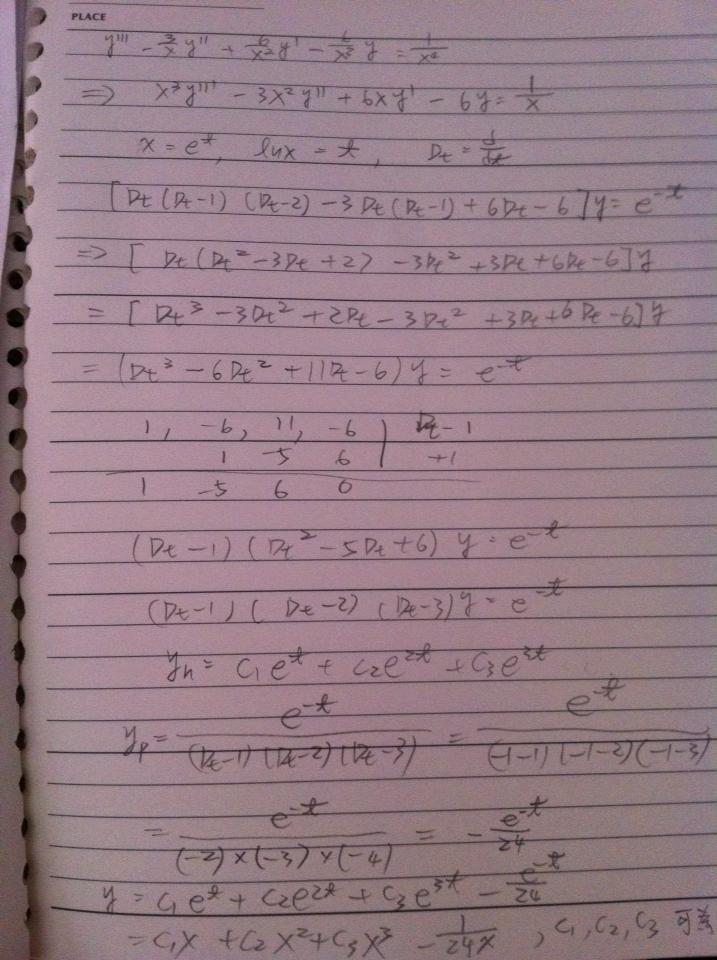 PLACE
y''' - 3/x y'' + 6/x² y' - 6/x³ y = 1/x⁴
⇒ x³y''' - 3x²y'' + 6xy' - 6y = 1/x
x = e^t, lnx = t, Dt = d/dt
[Dt(Dt-1)(Dt-2) - 3Dt(Dt-1) + 6Dt - 6]y = e^-t
⇒ [Dt(Dt² - 3Dt + 2) - 3Dt² + 3Dt + 6Dt - 6]y
= [Dt³ - 3Dt² + 2Dt - 3Dt² + 3Dt + 6Dt - 6]y
= (Dt³ - 6Dt² + 11Dt - 6)y = e^-t
1, -6, 11, -6 | Dt - 1
1 -5 6 | +1
1 -5 6 0
(Dt - 1)(Dt² - 5Dt + 6)y = e^-t
(Dt-1)(Dt-2)(Dt-3)y = e^-t
yh = C1e^t + C2e^2t + C3e^3t
yp = e^-t / (Dt-1)(Dt-2)(Dt-3) = e^-t / (-1-1)(-1-2)(-1-3)
= e^-t / (-2)×(-3)×(-4) = - e^-t / 24
y = C1e^t + C2e^2t + C3e^3t - e^-t / 24
= C1x + C2x² + C3x³ - 1/24x , C1, C2, C3 可為